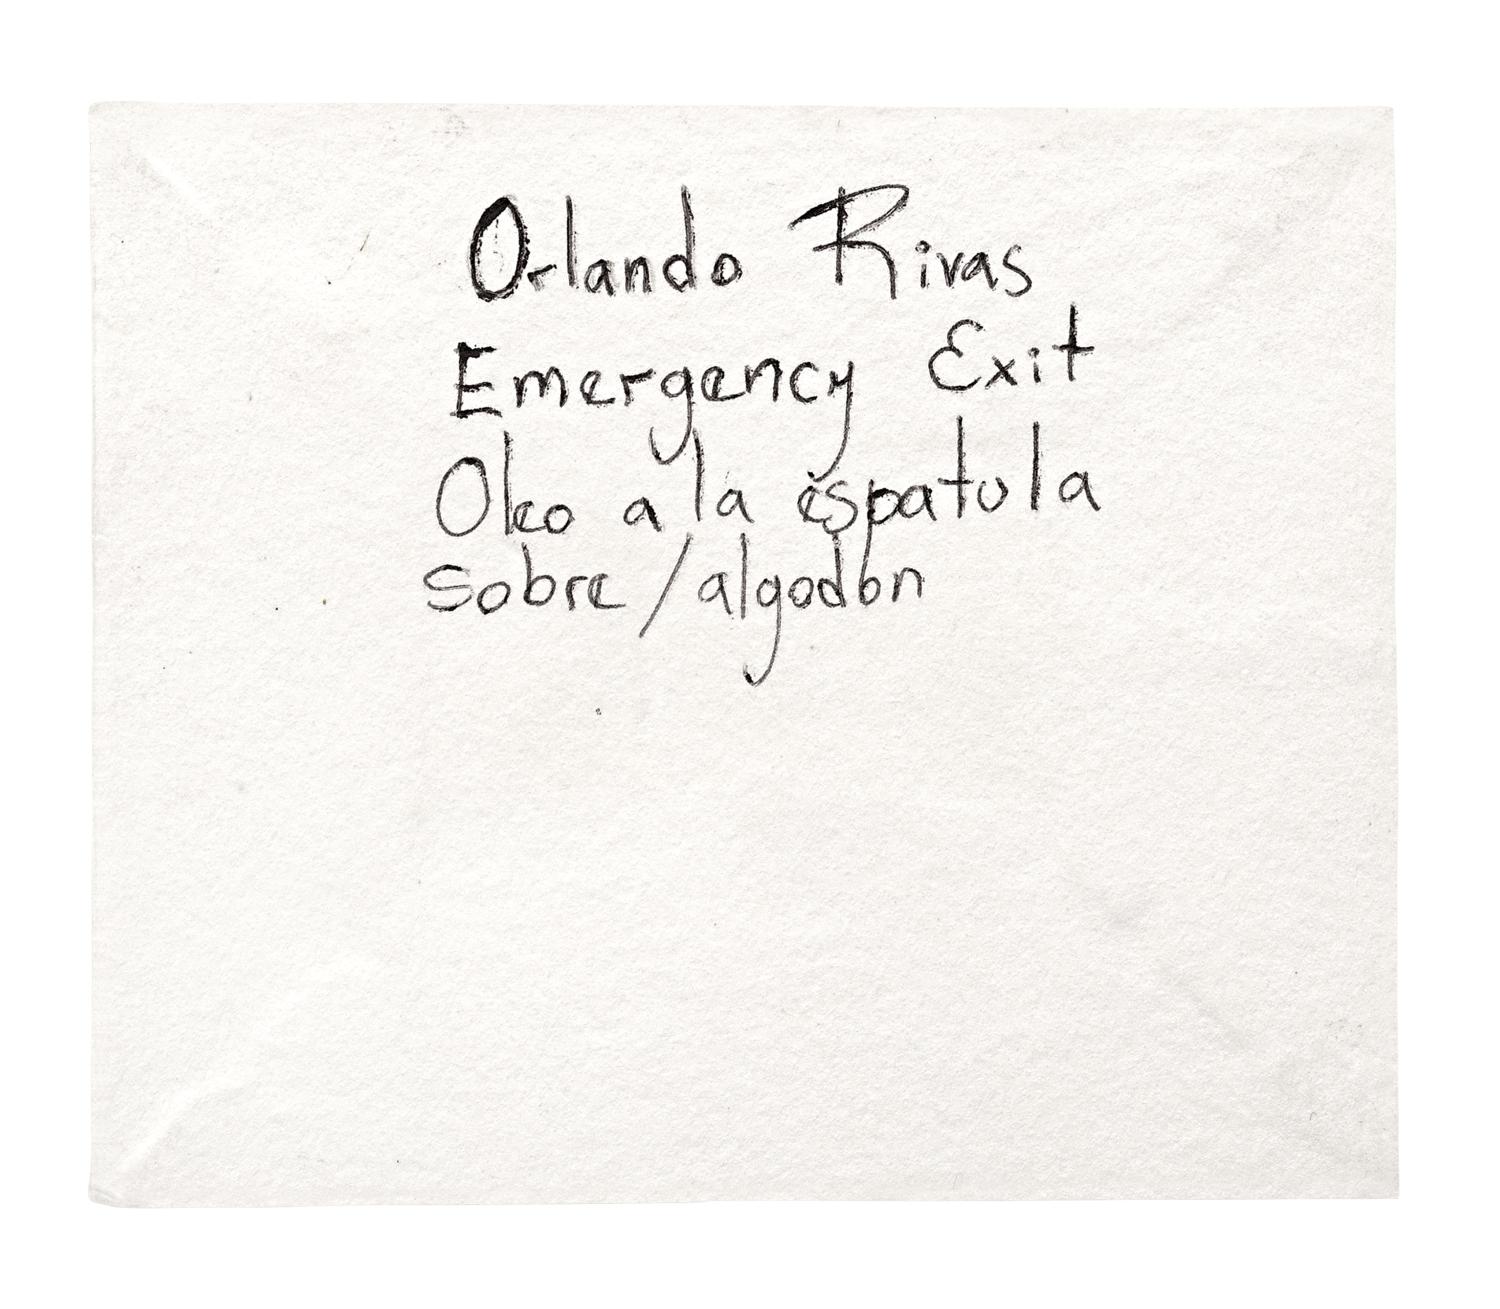 Orlando Rivas
Emergency Exit
Oleo a la espatula
Sobre / algodón